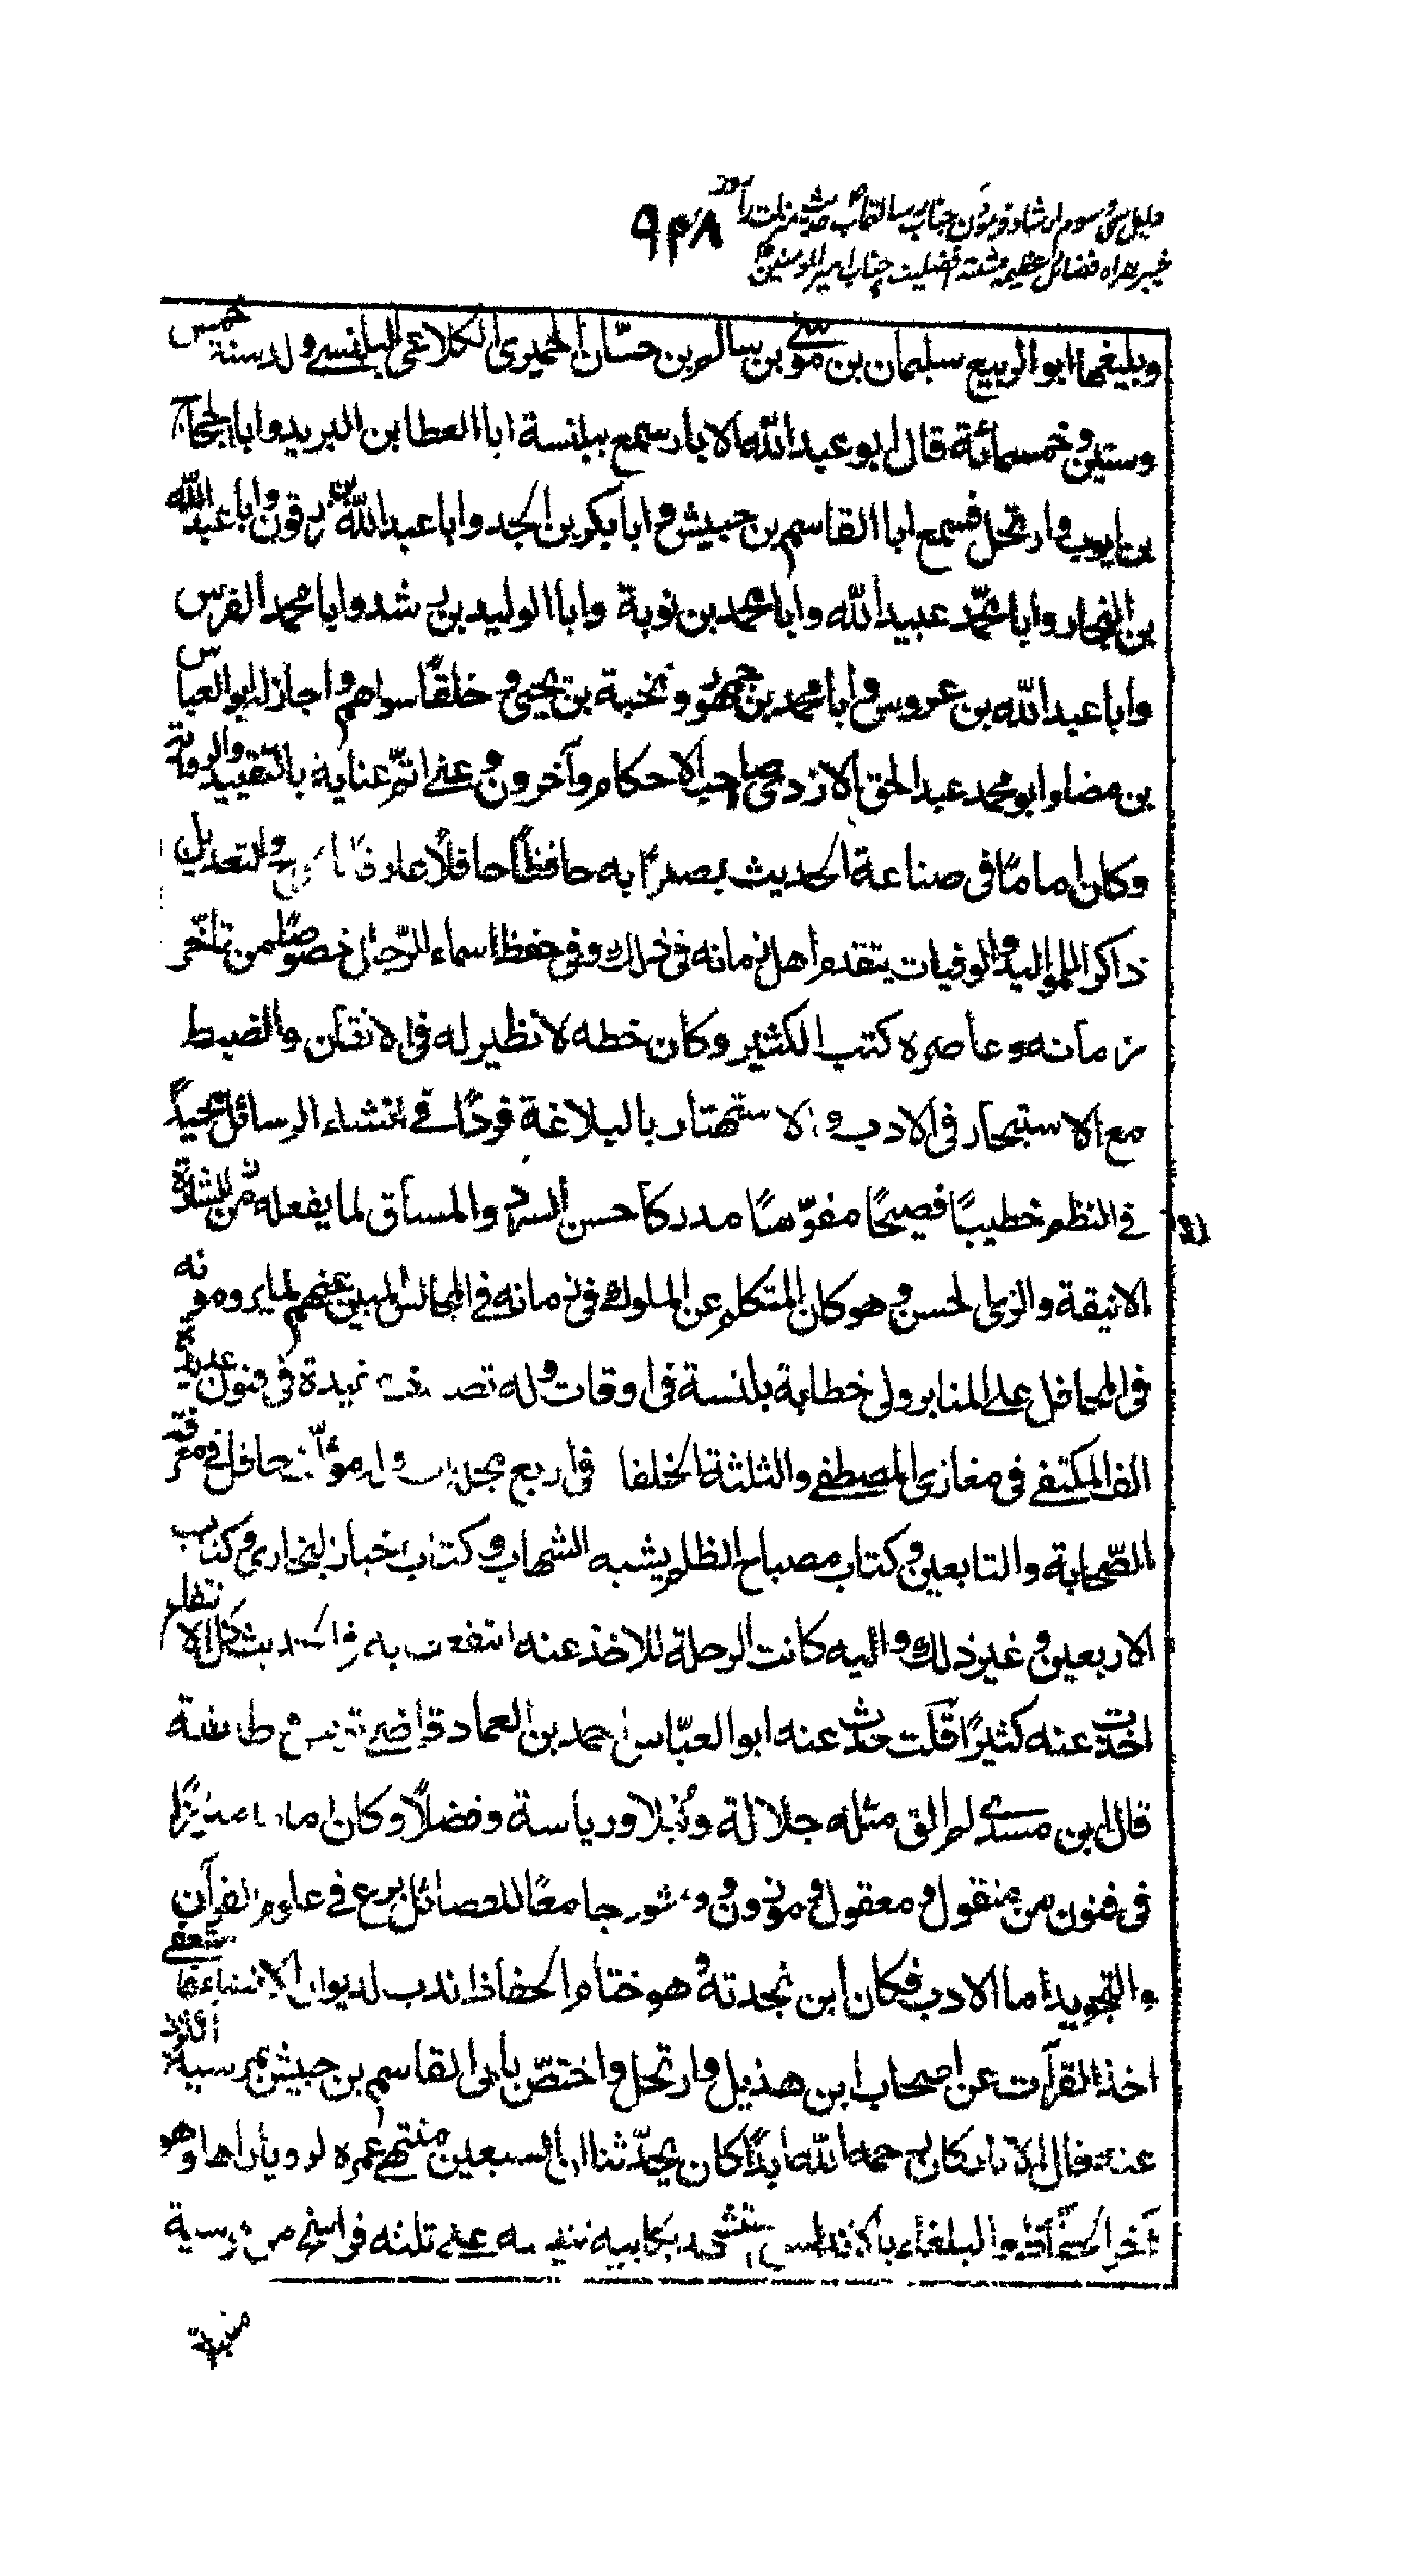 دلیل سی و سوم ارشاد فرمودن جناب رسالتمآب حدیث منزلت را روز
خیبر همراه فضائل عظیمه مثبته افضلیت جناب امیرالمؤمنین
۹۴۸
وبليغها ابو الربيع سليمان بن موسى بن سالم بن حسّان الحميرى الكلاعى البلنسى ولد سنة خمس
وستين وخمسمائة قال ابو عبد الله الابار سمع ببلنسة ابا العطا بن البريد وابا الحجاج
بن ايوب وارتحل فسمع ابا القاسم بن حبيش وابا بكر بن الجد وابا عبد الله بن زرقون وابا عبد الله
بن الفخار وابا محمّد عبيد الله وابا محمد بن نوبة وابا الوليد بن رشد وابا محمد الفرس
وابا عبد الله بن عروس وابا محمد بن جمهور ونخبة بن يحيى وخلقًا سواهم واجاز له ابو العباس
بن مضا وابو محمد عبد الحق الازدى صاحب الاحكام وآخرون وعنى اتمّ عناية بالتقييد والرواية
وكان اماما فى صناعة الحديث بصيرًا به حافظًا حافلًا عارفًا بالجرح والتعديل
ذاكرا للمواليد والوفيات يتقدم اهل زمانه فى ذلك وفى حفظ اسماء الرّجال خصوصًا من تاخّر
زمانه وعاصره كتب الكثير وكان خطه لا نظير له فى الاتقان والضبط
مع الاستبحار فى الادب والاستهتار بالبلاغة فردًا فى انشاء الرسائل مجيدًا
فى النظم خطيبًا فصيحًا مفوّها مدركا حسن السرد والمساق لما يفعله من الشارة
الانيقة والزى الحسن وهو كان المتكلم عن الملوك فى زمانه فى المجالس المبين عنهم لما يرومونه
فى المحافل على المنابر ولى خطابة بلنسة فى اوقات وله تصانيف مفيدة فى فنون عديدة
الف المكتفى فى مغازى المصطفى والثلثة الخلفا فى اربع مجلدات وله مؤلّف حافل فى معرفة
الصّحابة والتابعين وكتاب مصباح الظلم يشبه الشهاب وكتاب اخبار البخارى وكتاب
الاربعين وغير ذلك واليه كانت الرحلة للاخذ عنه انتفعت به فى الحديث كل الانتفاع
اخذت عنه كثيرًا قلت حدّث عنه ابو العبّاس احمد بن العماد قاضى تونس وطائفة
قال ابن مسدى لم الق مثله جلالة ونُبلا ورياسة وفضلًا وكان اماما مبرّزًا
فى فنون من منقول ومعقول وموزون ومنثور جامعًا للفضائل برع فى علوم القرآن
والتجويد اما الادب فكان ابن نجدته وهو ختام الحفاظ ندب لديوان الانشاء فاستعفى
اخذ القرآت عن اصحاب ابن هذيل وارتحل واختصّ بابى القاسم بن حبيش بمرسية اكثر
عنه قال الابار كان رحمه الله ابدًا كان يحدّثنا ان السبعين منتهى عمره لرويا رآها وهو
آخر الحفّاظ والبلغاء بالاندلس استشهد بكاينة على ثلثة فراسخ من مرسية